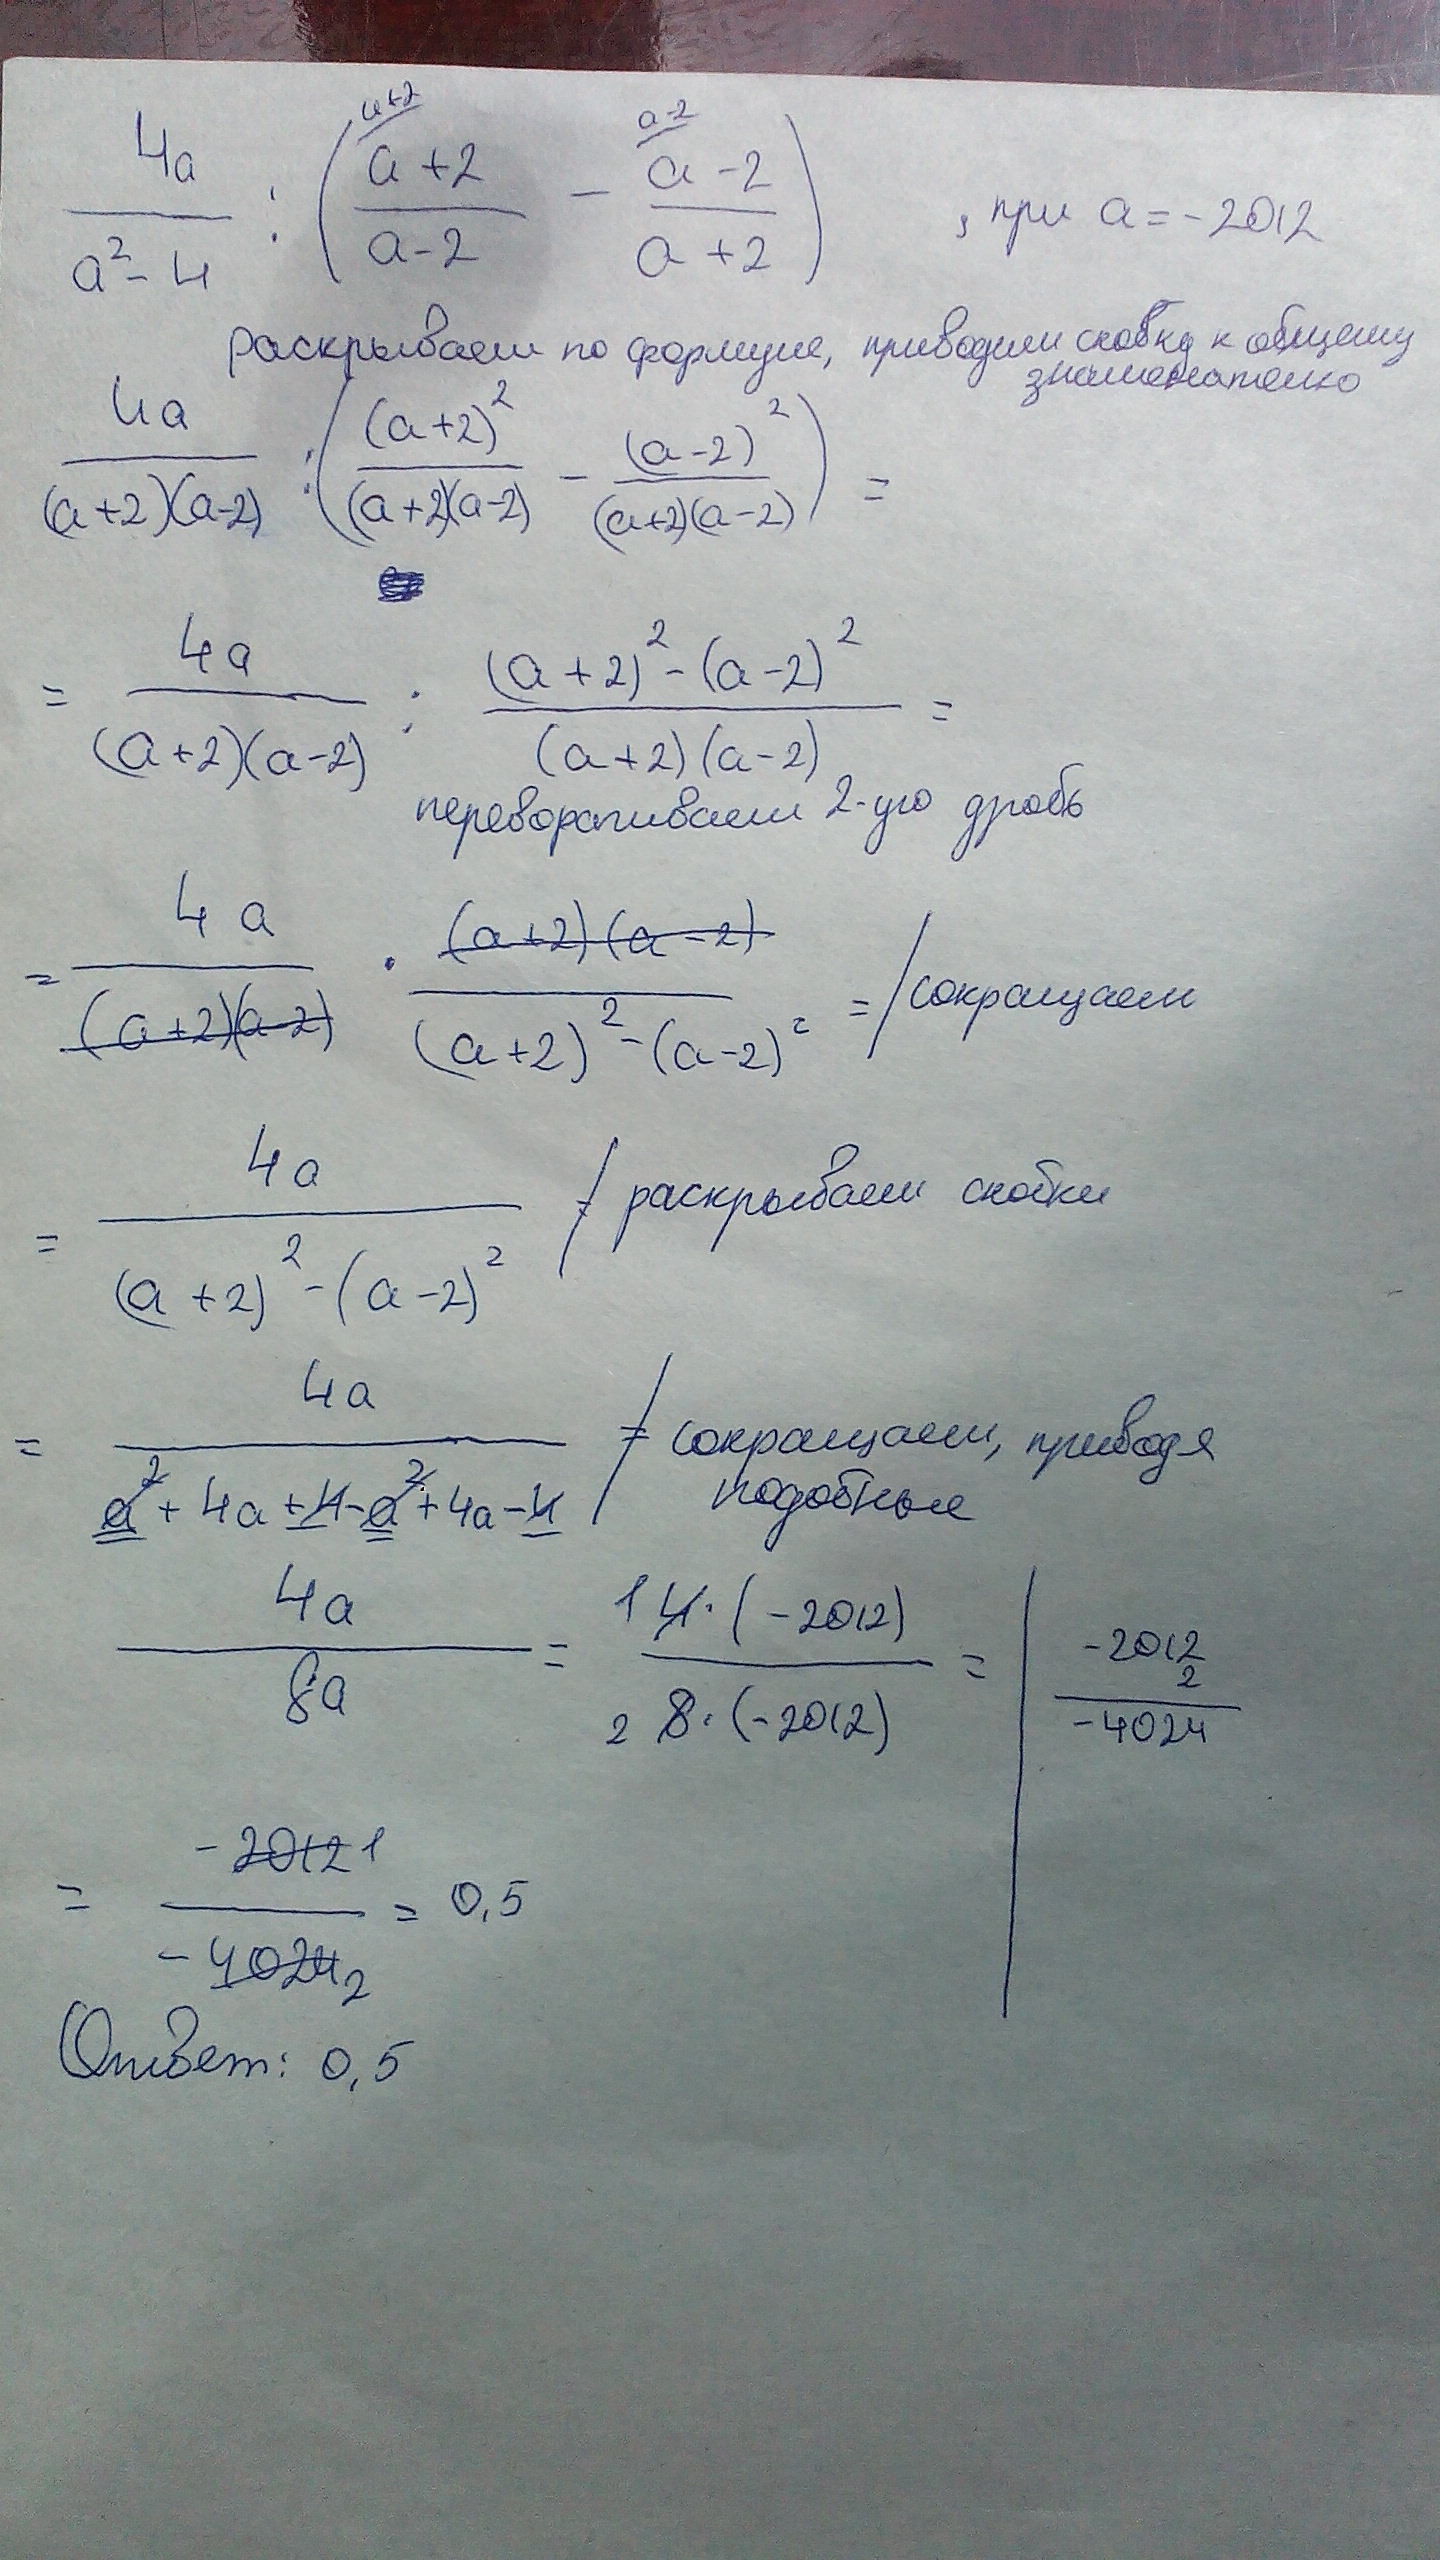 4a / (a² - 4) : ( (a + 2) / (a - 2) - (a - 2) / (a + 2) ) , при a = -2012
a+2 a-2
раскрываем по формуле, приводим скобку к общему
знаменателю
4a / ((a+2)(a-2)) : ( (a+2)² / ((a+2)(a-2)) - (a-2)² / ((a+2)(a-2)) ) =
= 4a / ((a+2)(a-2)) : ((a+2)² - (a-2)²) / ((a+2)(a-2)) =
переворачиваем 2-ую дробь
= 4a / ((a+2)(a-2)) · (a+2)(a-2) / ((a+2)² - (a-2)²) = / сокращаем
= 4a / ((a+2)² - (a-2)²) = / раскрываем скобки
= 4a / (a² + 4a + 4 - a² + 4a - 4) = / сокращаем, приводя
подобные
4a / 8a = 1 4·(-2012) / 2 8·(-2012) =
-2012
2
-4024
= -2012 1 / -4024 2 = 0,5
Ответ: 0,5